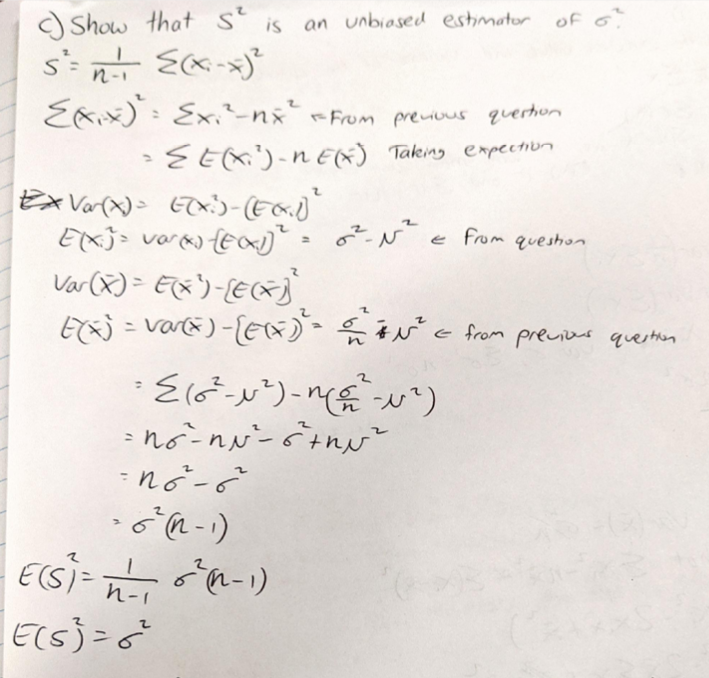 c) Show that S² is an unbiased estimator of σ².
S² = 1/(n-1) Σ(xᵢ-x̄)²
Σ(xᵢ-x̄)² = Σxᵢ² - nx̄² ← From previous question
= Σ E(xᵢ²) - n E(x̄²) Taking expection
Var(x) = E(xᵢ²) - (E(xᵢ))²
E(xᵢ)² = var(xᵢ) - [E(xᵢ)]² = σ² - μ² ← From question
Var(x̄) = E(x̄²) - [E(x̄)]²
E(x̄)² = Var(x̄) - [E(x̄)]² = σ²/n - μ² ← from previous question
= Σ(σ² - μ²) - n(σ²/n - μ²)
= nσ² - nμ² - σ² + nμ²
= nσ² - σ²
= σ²(n-1)
E(S)² = 1/(n-1) σ²(n-1)
E(S)² = σ²